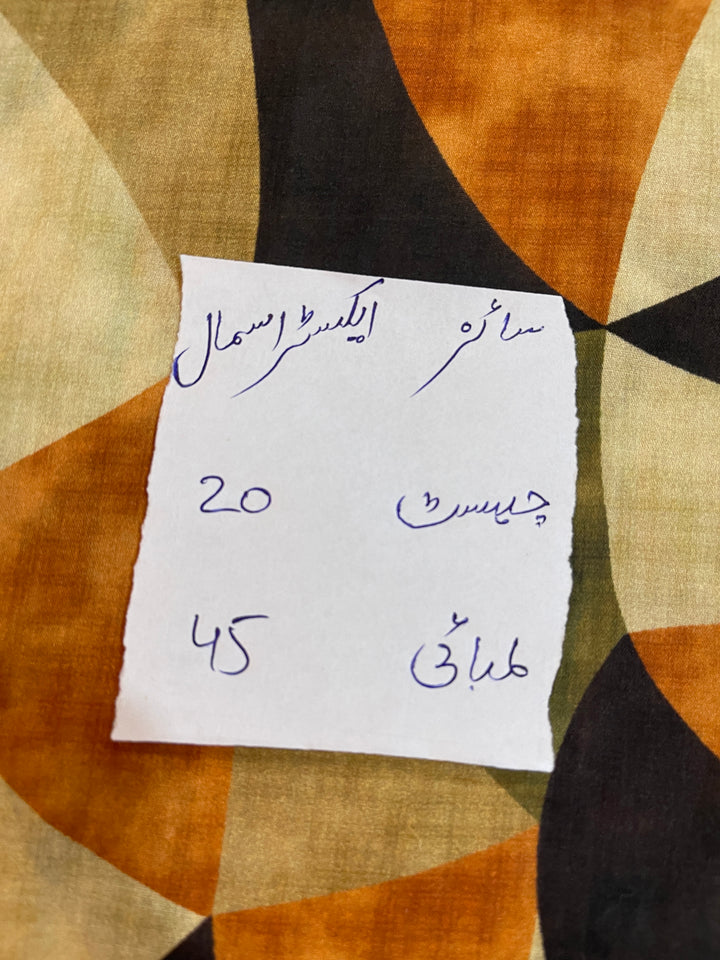 سائز ایکسٹرا سمال
چیسٹ 20
لمبائی 45